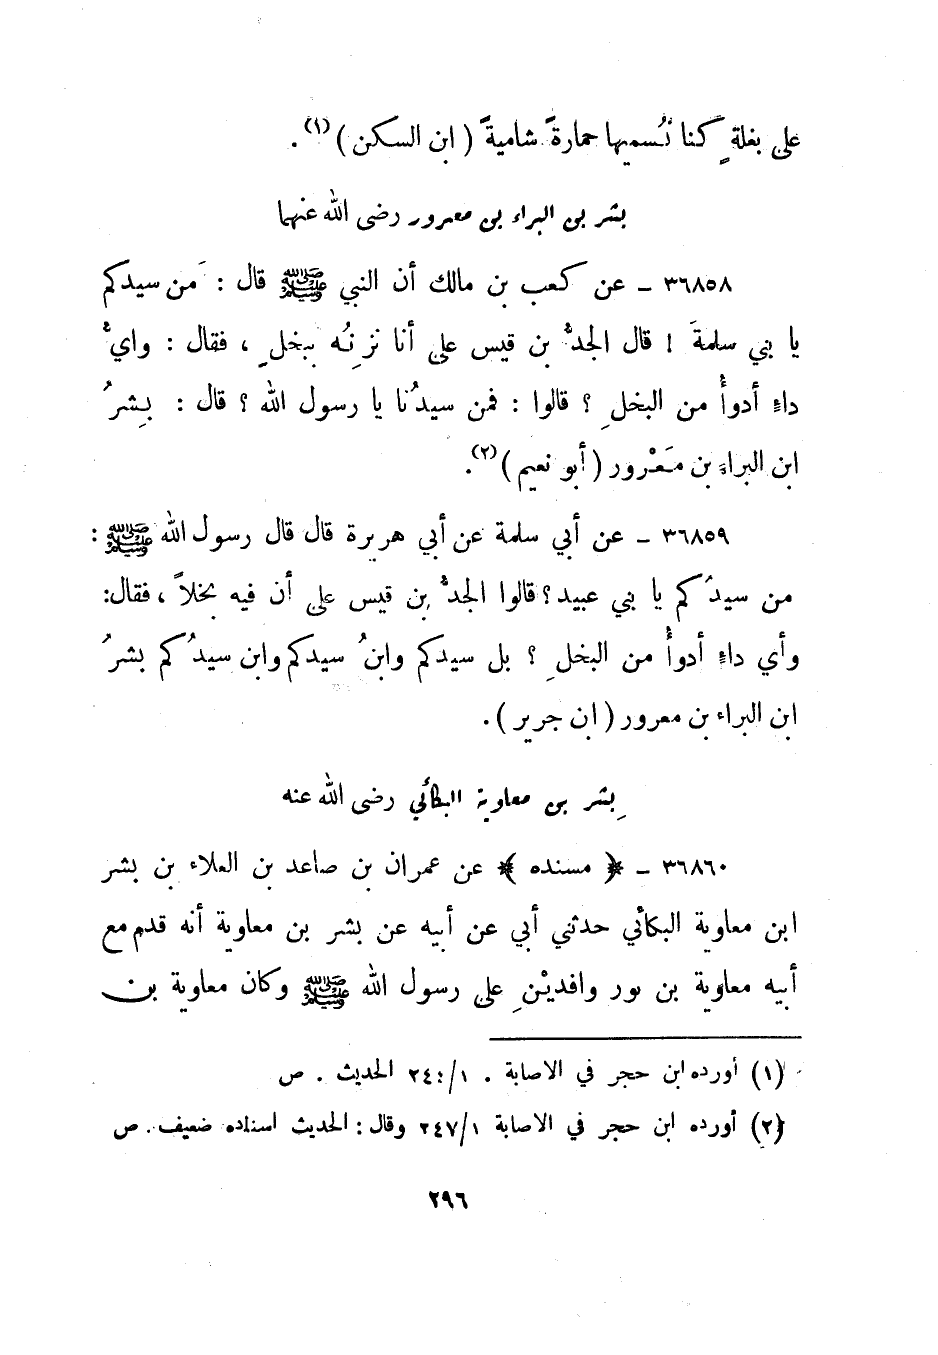 على بغلةٍ كنا نُسميها حمارةً شاميةً ( ابن السكن )(١).
بشر بن البراء بن معرور رضى الله عنهما
٣٦٨٥٨ ـ عن كعب بن مالك أن النبي ﷺ قال : مَن سيدكم
يا بني سلمةَ ! قال الجدُّ بن قيس على أنا نزنِّه ببخلٍ ، فقال : وايُّ
داءٍ أدوأُ من البخلِ ؟ قالوا : فمن سيدُنا يا رسول الله ؟ قال : بِشرُ
ابن البراءِ بن مَعْرور ( أبو نعيم )(٢).
٣٦٨٥٩ ـ عن أبي سلمة عن أبي هريرة قال قال رسول الله ﷺ :
من سيدُكم يا بني عبيد ؟ قالوا الجدُّ بن قيس على أن فيه بخلاً ، فقال :
وأي داءٍ أدوأُ من البخلِ ؟ بل سيدكم وابنُ سيدكم وابن سيدُكم بشرُ
ابن البراء بن معرور ( ابن جرير ) .
بِشر بن معاوية البكائي رضى الله عنه
٣٦٨٦٠ ـ ﴿ مسنده ﴾ عن عمران بن صاعد بن العلاء بن بشر
ابن معاوية البكائي حدثني أبي عن أبيه عن بشر بن معاوية أنه قدم مع
أبيه معاوية بن ثور وافديْنِ على رسول الله ﷺ وكان معاوية بن
(١) أورده ابن حجر في الاصابة . ١/٢٤٠ الحديث . ص
(٢) أورده ابن حجر في الاصابة ١/٢٤٧ وقال : الحديث اسناده ضعيف . ص
٢٩٦